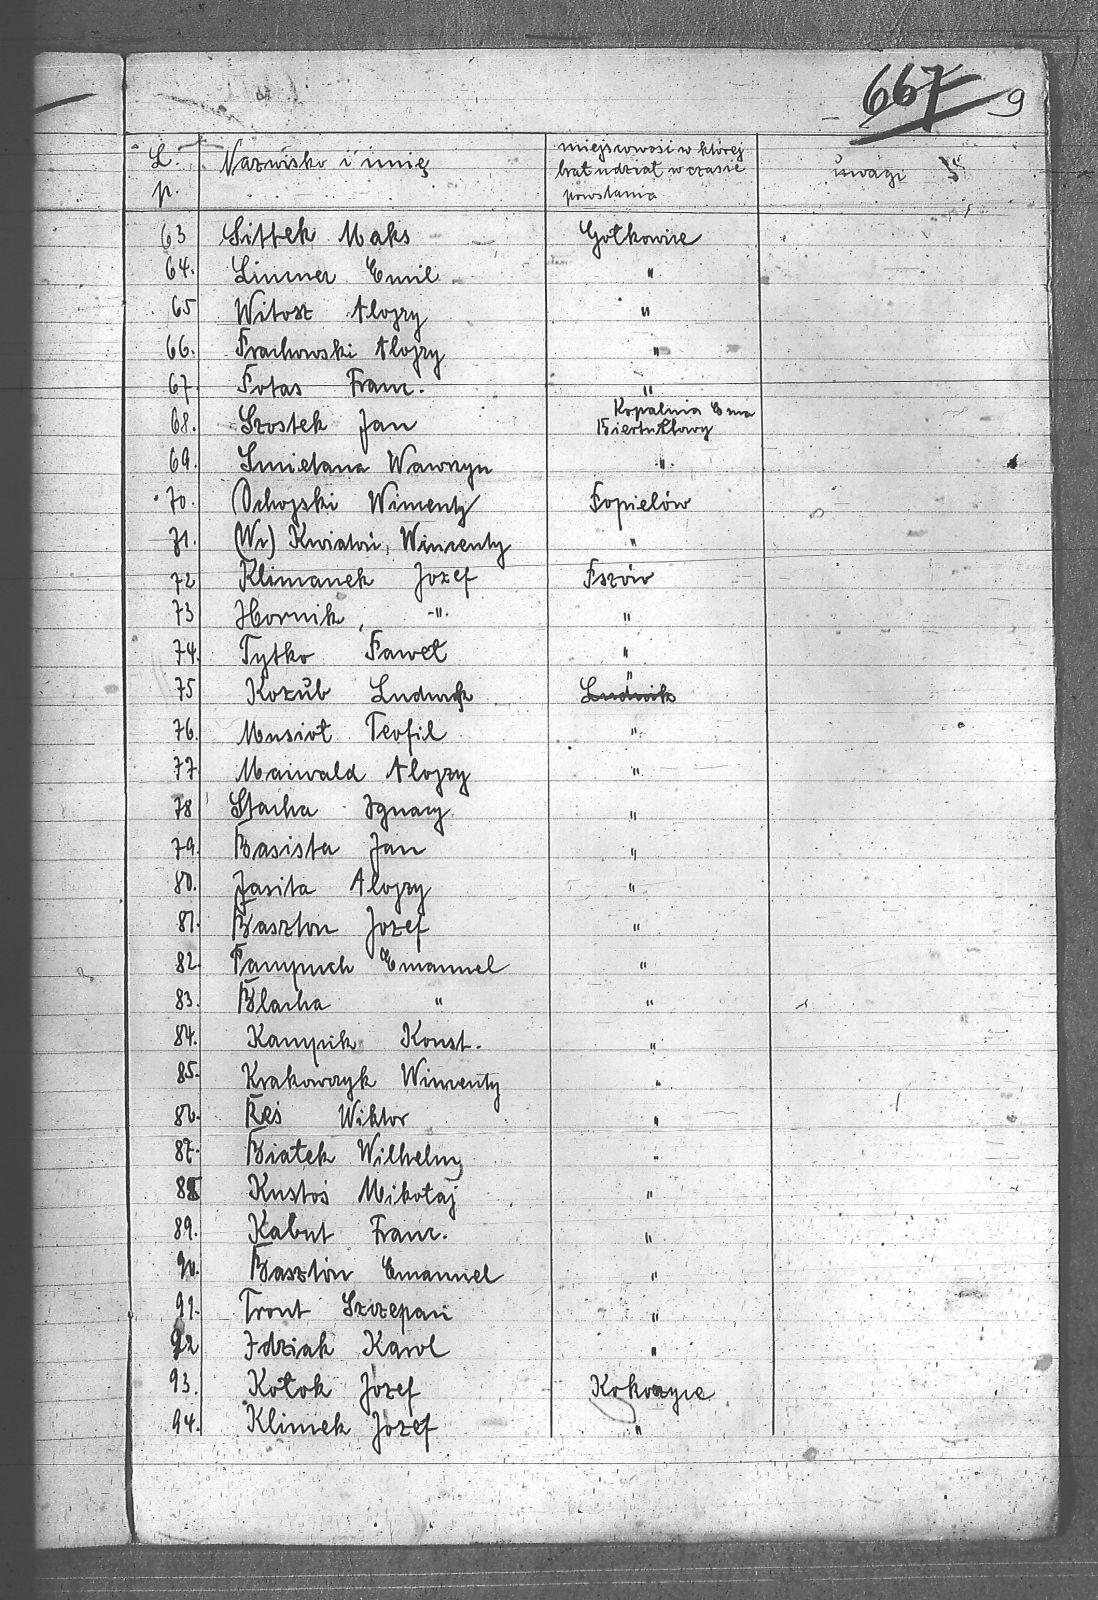 667 9
L. p. Nazwisko i imię miejscowość w której brał udział w czasie powstania uwagi
63 Sittek Maks Gołkowice
64. Linner Emil "
65 Witosz Alojzy "
66. Prachowski Alojzy "
67. Potas Franc. "
68. Szostek Jan Kopalnia Ema Biertułtowy
69. Smietana Wawrzyn "
70. Ochojski Wincenty Popielów
71. Kwiatoń, Wincenty "
72 Klimanek Jozef Pszów
73 Hornik, -"- "
74. Tytko Paweł "
75 Kozub Ludwik "
76. Musioł Teofil "
77 Maiwald Alojzy "
78 Stacha Ignacy "
79. Basista Jan "
80. Jasita Alojzy "
81. Baszton Jozef "
82. Pampuch Emanuel "
83. Blacha " "
84. Kampik Konst. "
85. Krakowczyk Wincenty "
86. Reś Wiktor "
87. Białek Wilhelm "
88 Kustoś Mikołaj "
89. Kabut Franc. "
90. Basztón Emanuel "
91. Tront Szczepan "
92 Idziak Karol "
93. Kołok Jozef Kokoszyce
94. Klimek Jozef "